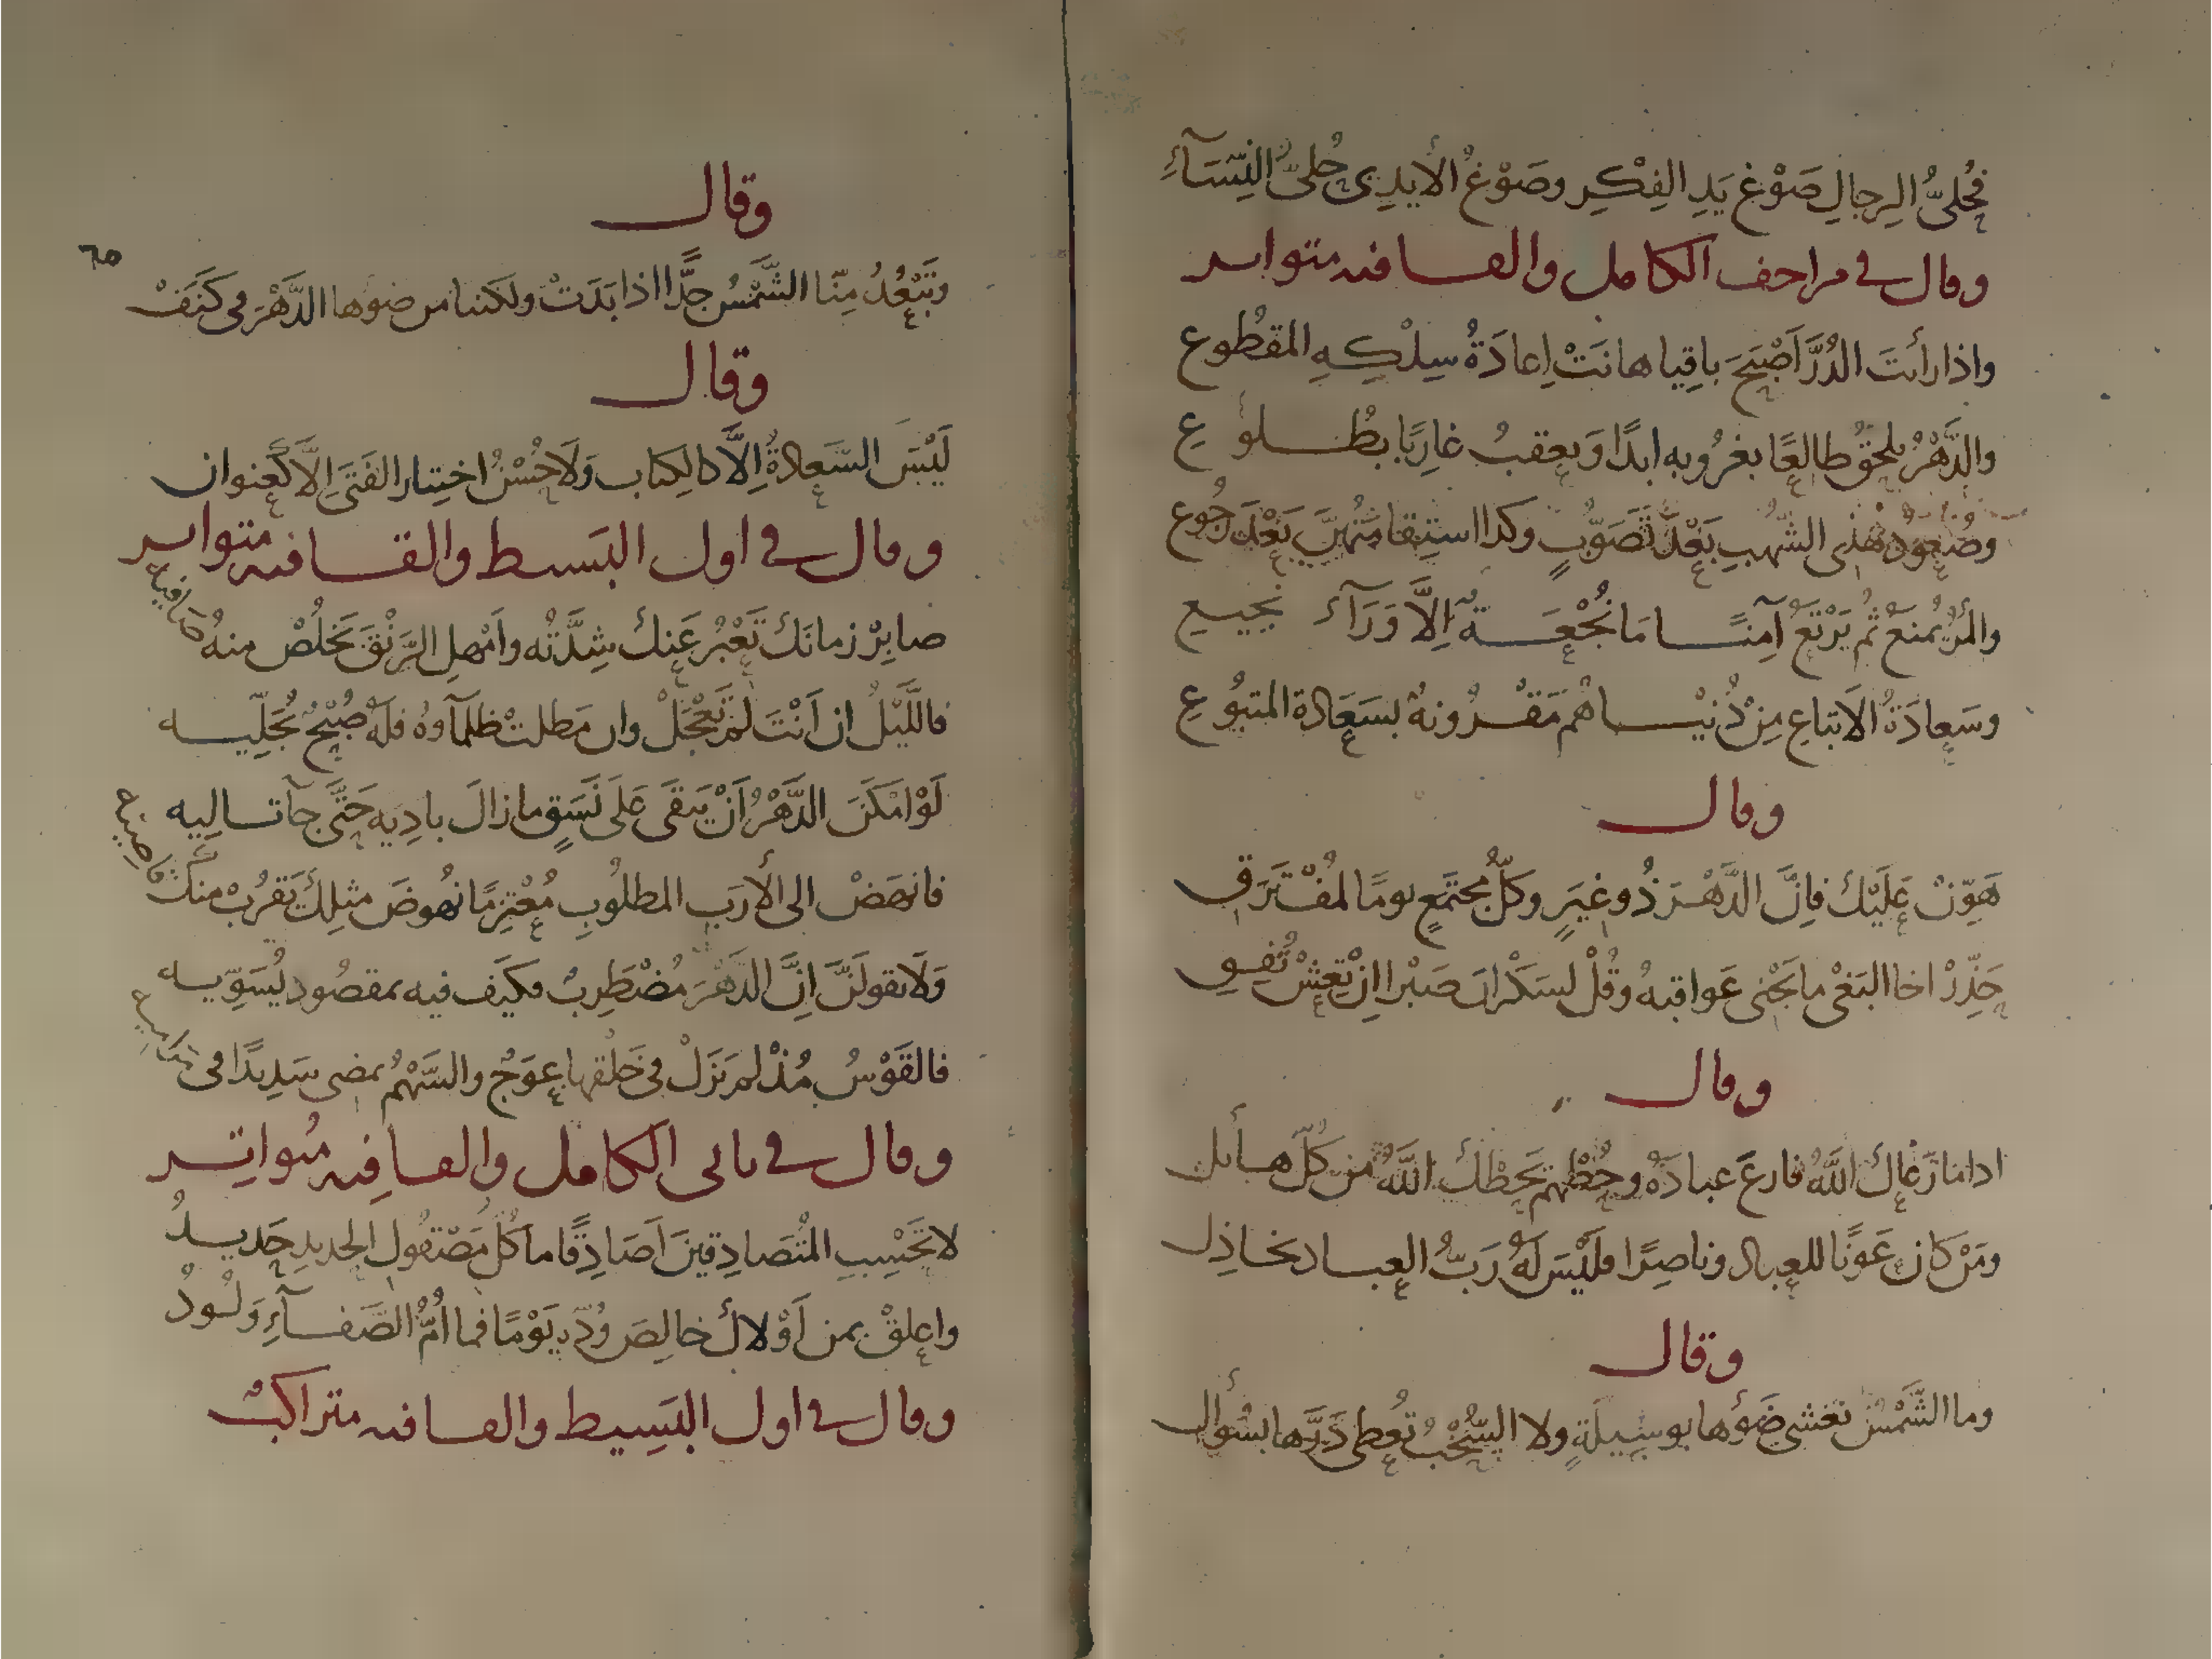 فحُلىُّ الرِجالِ صَوْغ يَدِ الفِكْرِ وصَوْغُ الأيدِى حُلىُّ النِسَآءِ
وقال في مزاحف الكامل والقافيه متواتر
واذا رأيتَ الدُرَّ اَصْبَحَ باقِيا هانَتْ اِعادَةُ سِلْكِهِ المقطُوع
والدَّهْرُ يلحَقُ طالِعًا بغرُوبه ابدًا وَيعقبُ غارِبًا بطُلوُعِ
وصُعوُدُ هٰذِى الشُهبِ بَعْدَ تَصَوُّبٍ وكذا استِقامَتُهنَّ بَعْدَ رجُوع
والمرُ يُمنَعُ ثُم يَرْتَعُ آمِنًا مَا نُجْعَةٌ اِلاَّ وَرَآءَ نجيعِ
وسَعادَةُ الاَتباعِ مِنْ دُنيْاهُم مَقْرُونةٌ بسَعَادة المتبُوعِ
وقال
هَوِّنْ عَلَيْكَ فاِنَّ الدَّهْرَ ذُو غِيَرٍ وكلُّ مجتَمعٍ يومًا لمُفْتَرَقِ
حَذِّرْ اخا البَغْى ما تَجْنى عَواقبهُ وقُلْ لسَكْرانَ صَبْرا اِنْ تَعِشْ تُفِقِ
وقال
اذا ما رَعاكَ اللهُ فارعَ عبادَهُ وحُطْهم يَحطْكَ اللهُ من كُلّ هائل
ومَنْ كان عَونًا للعِباد وناصِرًا فلَيْسَ لَهُ رَبُّ العباد بخاذِل
وقال
وما الشَّمْسُ تغشى ضَوْءُها بوسِيلَةٍ ولا السُّحْبُ تعُطى دَرَّها بسُؤال
وقال
٦٥
وتَبْعُدُ مِنّا الشَّمْسُ جدًّا اذا بَدَتْ ولكننا من ضوءها الدَّهْرَ فى كَنَفْ
وقال
لَيْسَ السَّعادةُ اِلاَّ كالكِتاب وَلاَ حُسْنُ اختِيار الفَتَى اِلاَّ كَعنوان
وقال في اول البَسيط والقافيه متواتر
صابِرْ زمانَكَ تَعْبُرْ عَنكَ شِدَّتُه واَمْهلِ الرَنْقَ يَخلُصْ منهُ صَافِيه
فاللَّيْلُ ان اَنْتَ لم تَعْجَلْ وان مَطلتْ ظلمآوهُ فلَهُ صُبْحٌ يُجَلِّيه
لَوْ امكَنَ الدَّهْرُ اَنْ يَبقَى عَلَى نَسَقٍ ما زالَ بادِيَه حَتَّى جآ تاليه
فانهَضْ الى الأرَبِ المطلُوبِ مُعْتزِمًا نهُوضَ مثلِكَ يَقرُبْ منكَ قاصِيه
وَلاَ تقولَنَّ اِنَّ الدَهْرَ مُضْطَرِبٌ فكيَف فيه بمقصُود يُسَوِّيه
فالقَوْسُ مُذْ لم تَزَلْ فى خَلْقها عِوَجٌ والسَّهْمُ يمضى سَدِيدًا فى
وقال في ثانى الكامل والقافِيه مُتواتِر
لا تَحْسِبِ المُتَصادِقينَ اَصَادِقًا ما كُلُّ مَصْقُول الحديدِ حَديدُ
واعلقْ بمن اَوْلاكَ خالِصَ وُدّهِ يَوْمًا فما اُمُّ الصَّفآءِ وَلُودُ
وقال في اول البَسِيط والقافيه متراكبْ